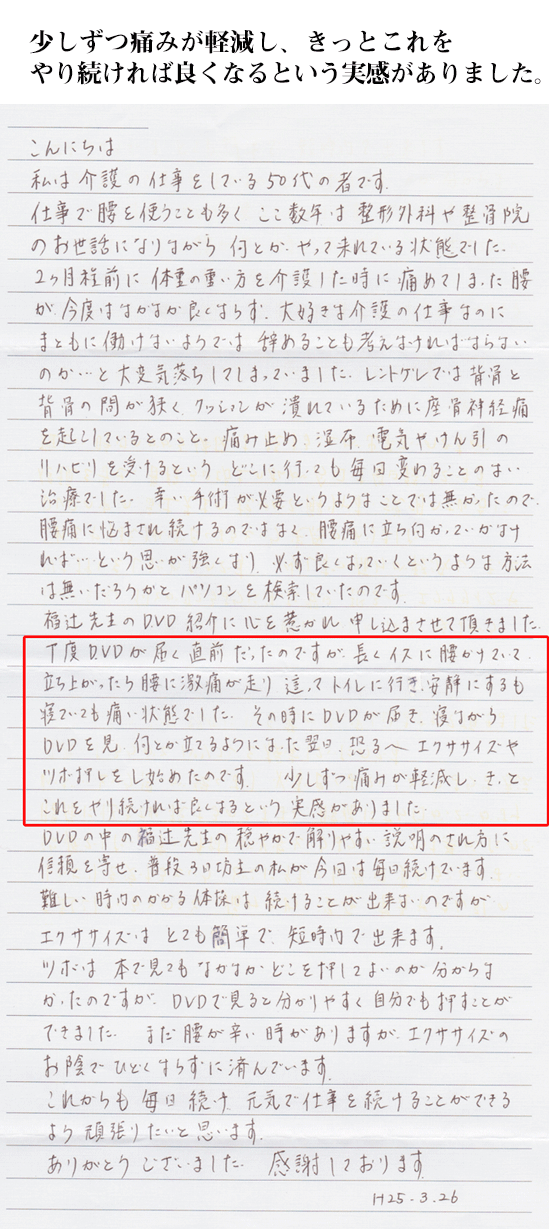 少しずつ痛みが軽減し、きっとこれを
やり続ければ良くなるという実感がありました。
こんにちは
私は介護の仕事をしている50代の者です。
仕事で腰を使うことも多く ここ数年は 整形外科や整骨院
のお世話になりながら 何とか、やって来れている状態でした。
2ヶ月程前に 体重の重い方を介護した時に 痛めてしまった腰
が、今度はなかなか良くならず、大好きな介護の仕事なのに
まともに働けないようでは 辞めることも考えなければならない
のか…と大変気落ちしてしまっていました。レントゲンでは背骨と
背骨の間が狭く、クッションが 潰れているために座骨神経痛
を起こしているとのこと。痛み止め、湿布、電気やけん引の
リハビリを受けるという どこに行っても毎回変わることのない
治療でした。幸い手術が必要というようなことでは無かったので、
腰痛に悩まされ続けるのではなく、腰痛に立ち向かっていかなけ
れば…という思いが強くなり、必ず良くなっていくというような方法
は無いだろうかとパソコンを検索していたのです。
福辻先生のDVD紹介に心を惹かれ 申し込まさせて頂きました。
丁度DVDが届く直前だったのですが、長くイスに腰かけていて、
立ち上がったら腰に激痛が走り 這ってトイレに行き、安静にするも
寝ていても痛い状態でした。その時にDVDが届き、寝ながら
DVDを見、何とか立てるようになった翌日、恐る〱エクササイズや
ツボ押しをし始めたのです。 少しずつ痛みが軽減し、きっと
これをやり続ければ良くなるという 実感がありました。
DVDの中の福辻先生の穏やかで解りやすい説明のされ方に
信頼を寄せ、普段3日坊主の私が今回は毎日続けています。
難しい時間のかかる体操は 続けることが出来ないのですが
エクササイズは とても簡単で、短時間で出来ます。
ツボは 本で見てもなかなか どこを押してよいのか分からな
かったのですが、DVDで見ると分かりやすく自分でも押すことが
できました。 まだ腰が辛い時がありますが、エクササイズの
お陰で ひどくならずに済んでいます。
これからも 毎日続け、元気で仕事を続けることができる
よう 頑張りたいと思います。
ありがとう ございました。 感謝しております。
H25.3.26